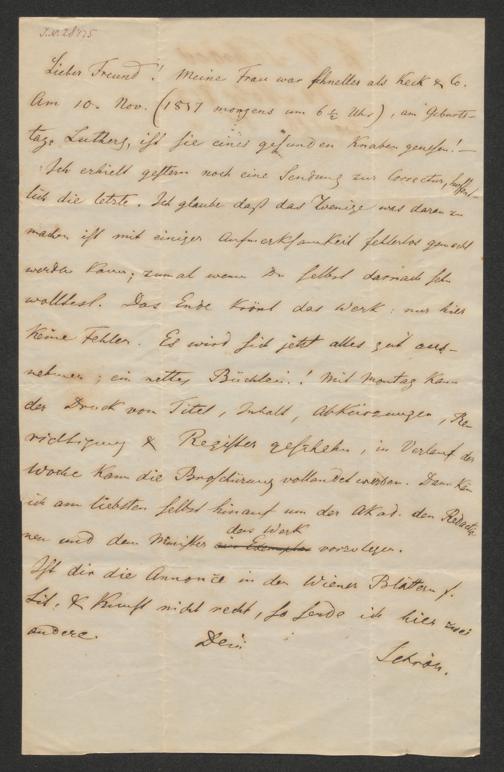 J.N. 28875
Lieber Freund! Meine Frau war schneller als Keck & Co.
Am 10. Nov. (1857 morgens um 6 ½ Uhr), am Geburts-
tage Luthers, ist sie eines gesunden Knaben genesen! –
Ich erhielt gestern noch eine Sendung zur Correctur, hoffent-
lich die letzte. Ich glaube daß das Wenige was daran zu
machen ist mit einiger Aufmerksamkeit fehlerlos gemacht
werden kann; zumal wenn Du selbst darnach sehn
wolltest. Das Ende krönt das Werk: nur hier
keine Fehler. Es wird sich jetzt alles gut aus-
nehmen; ein nettes Büchlein! Mit Montag kann
der Druck von Titel, Inhalt, Abkürzungen, Be
richtigung & Register geschehen, in Verlauf der
Woche kann die Broschürung vollendet werden. Dann
ich am liebsten selbst hinauf um der Akad. den Redactio
nen und dem Minister ein Exemplar das Werk vorzulegen.
Ist dir die Annonce in den Wiener Blättern f.
Lit. & Kunst nicht recht, so sende ich hier zwei
andere.
Dein
Schröer.